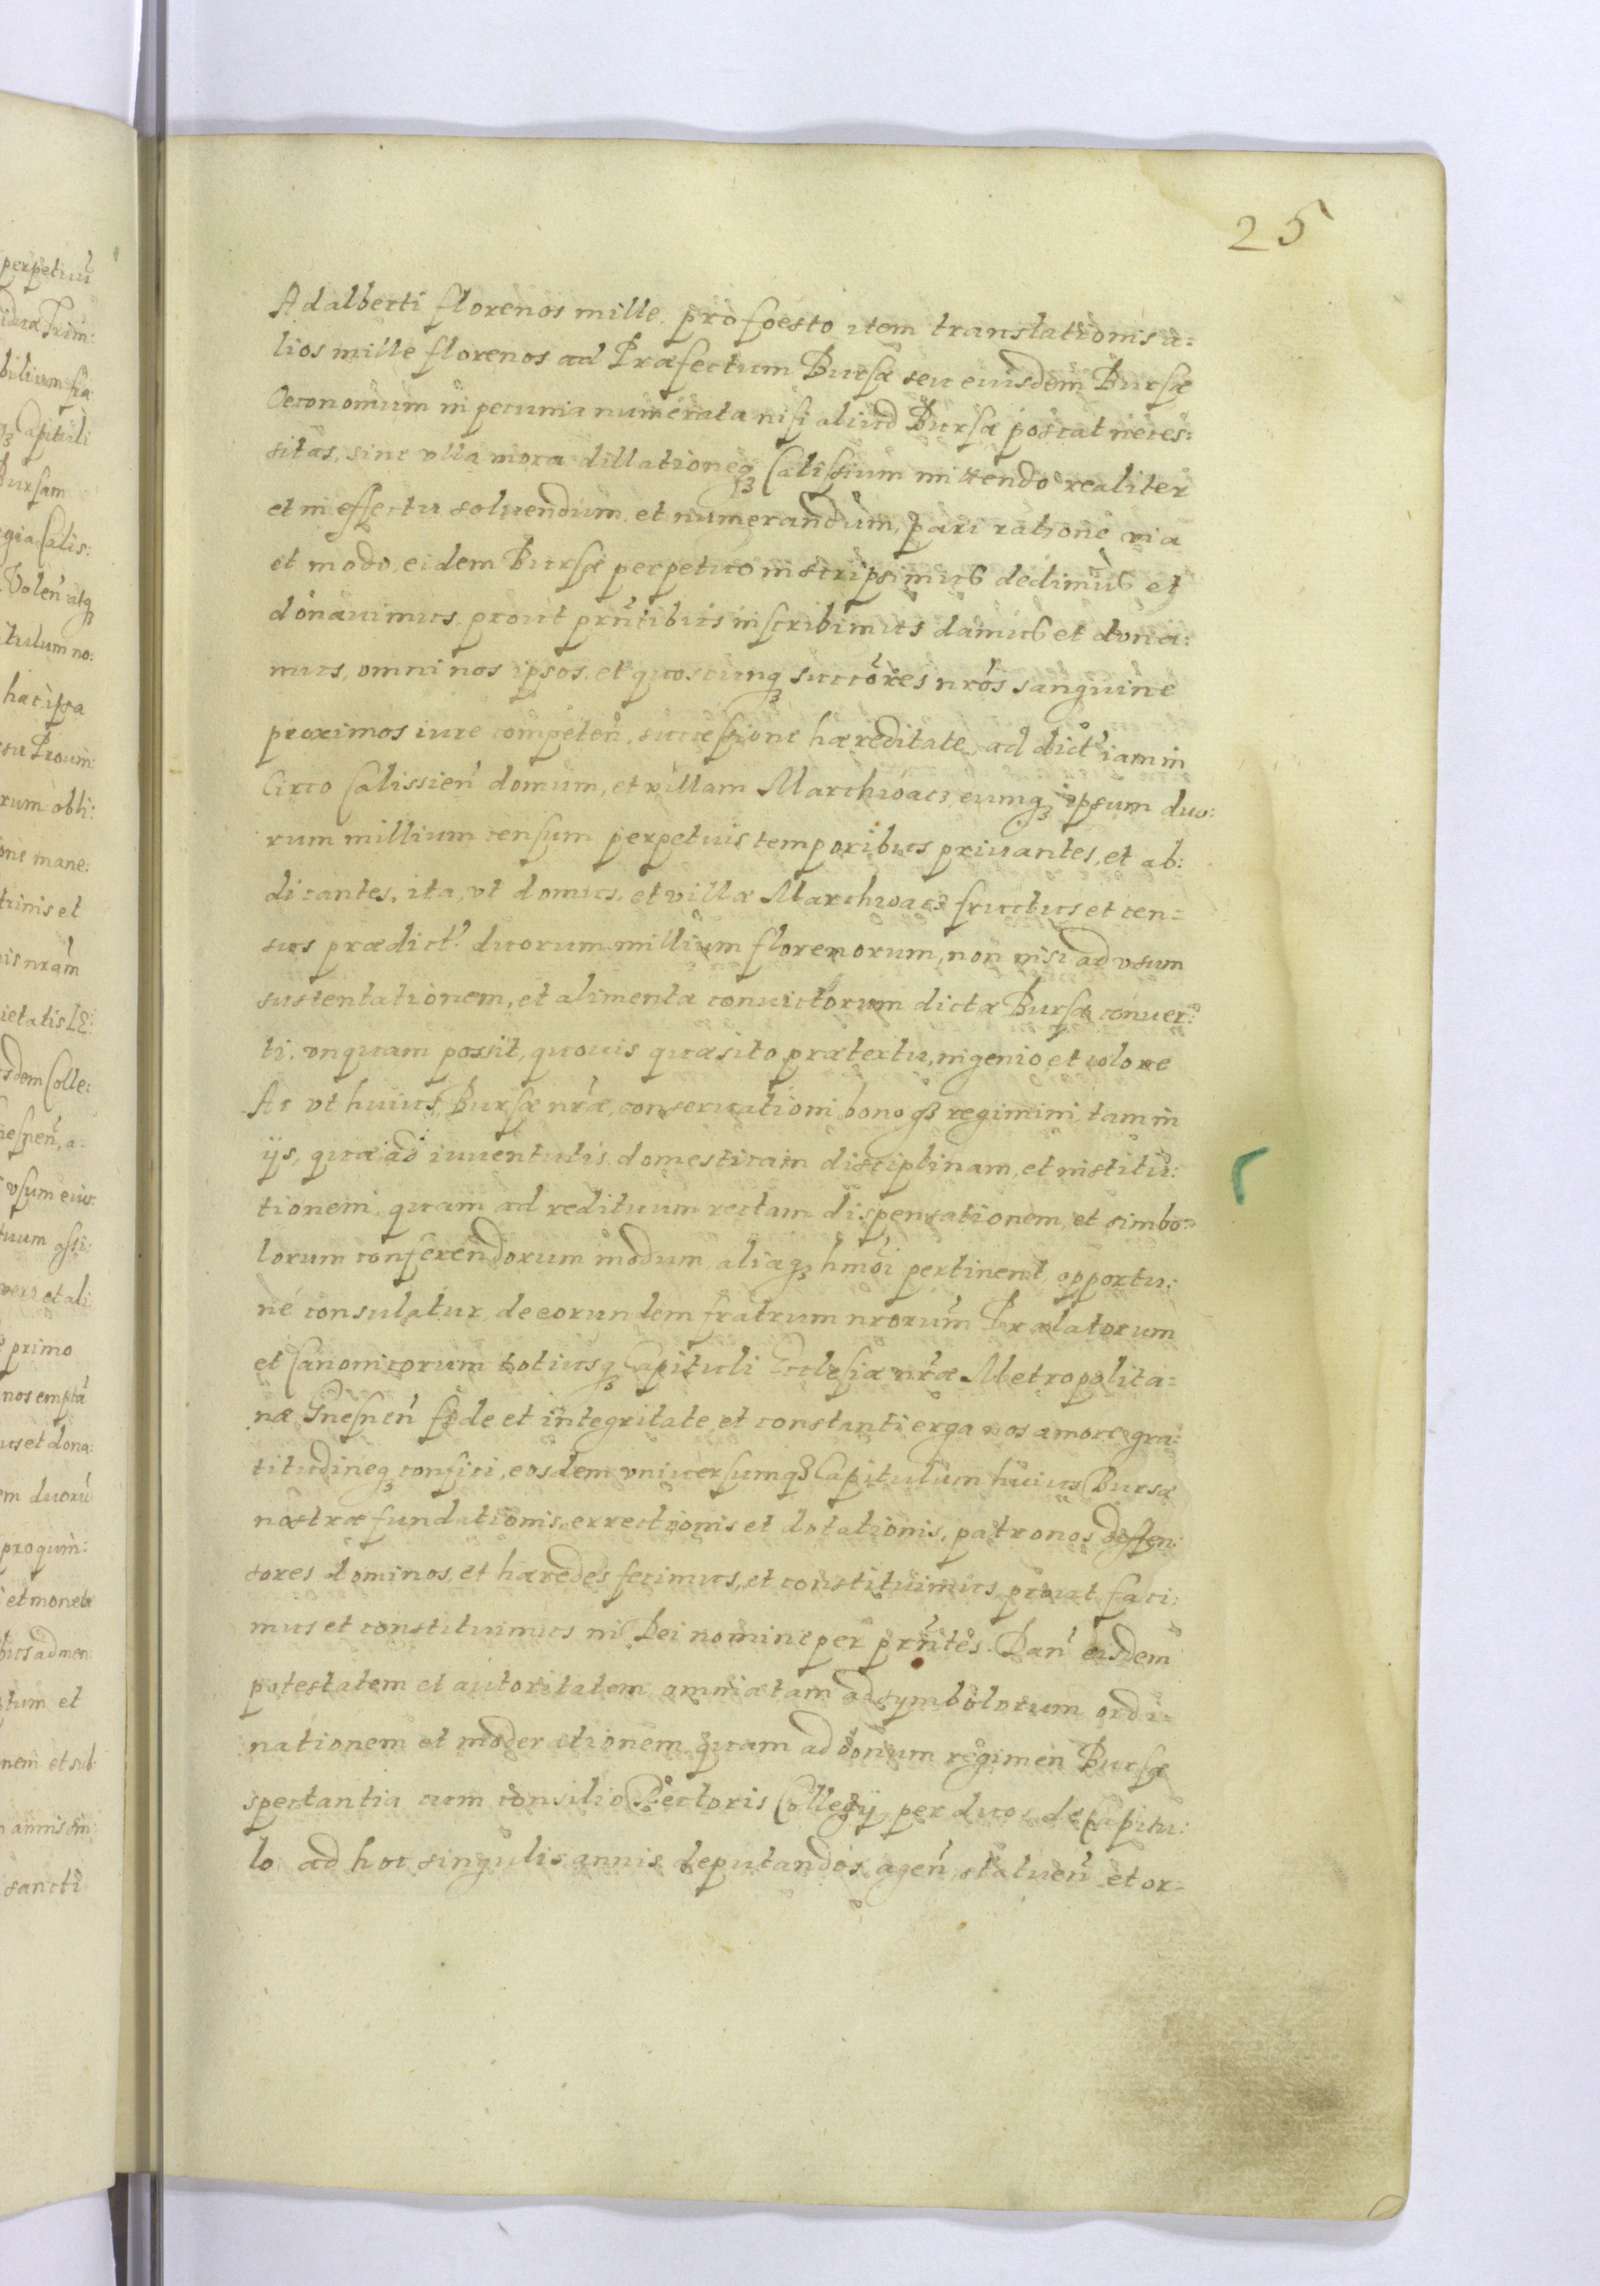 25
Adalberti florenos mille, pro foesto item translationis a=
lios mille florenos ad Præfectum Bursæ seu eiusdem Bursæ
Oeconomum in pecunia numerata nisi aliud Bursæ poscat neces:
sitas, sine vlla mora dillationeq₃ Calissium mittendo realiter
et in effectu soluendum et numerandum, pari ratione via
et modo, eidem Bursæ perpetuo inscripsimus dedimus et
donauimus, prout pr̃ntibus inscribimus damus et dona:
mus, omni nos ipsos, et quoscunq₃ succ̃ores nr̃os sanguine
proximos iure competeñ, successione hæreditate, ad dict: iam in
Circo Calissieñ domum, et villam Marchwacz eumq₃ ipsum duo:
rum millium censum perpetuis temporibus priuantes, et ab:
dicantes, ita, vt domus, et villæ Marchwacz fructus et cen=
sus prædict: duorum millium florenorum, non nisi ad vsum
sustentationem, et alimenta conuictorum dictæ Bursæ conuer:
ti, vnquam possit, quouis quæsito prætextu, ingenio et colore
Ac vt huius Bursæ nr̃æ, conseruationi, bonoq₃ regimini, tam in
ijs, quæ ad iuuentutis domesticam disciplinam, et institu:
tionem, quam ad redituum rectam dispensationem, et simbo=
lorum conferendorum modum, aliaq₃ hm̃oi pertinent, opportu:
né consulatur, de eorundem fratrum nr̃orum Prælatorum
et Canonicorum totiusq₃ Capituli Ecclesiæ nr̃æ Metropolita=
næ Gnesneñ fide et integritate, et constanti erga nos amore gra:
titudineq₃ confisi, eosdem vniuersumq₃ Capitulum huius Bursæ
nostræ fundationis, errectionis et dotationis, patronos deffen:
sores dominos, et hæredes fecimus, et constituimus, prout faci:
mus et constituimus in Dei nomine per pr̃ntes. Dañ eisdem
potestatem et autoritatem omnia tam ad symbolorum ordi=
nationem et moderationem quam ad bonum regimen Bursæ
spectantia cum consilio Rectoris Collegij per duos de Capitu:
lo ad hoc singulis annis deputandos, ageñ statueñ et or=